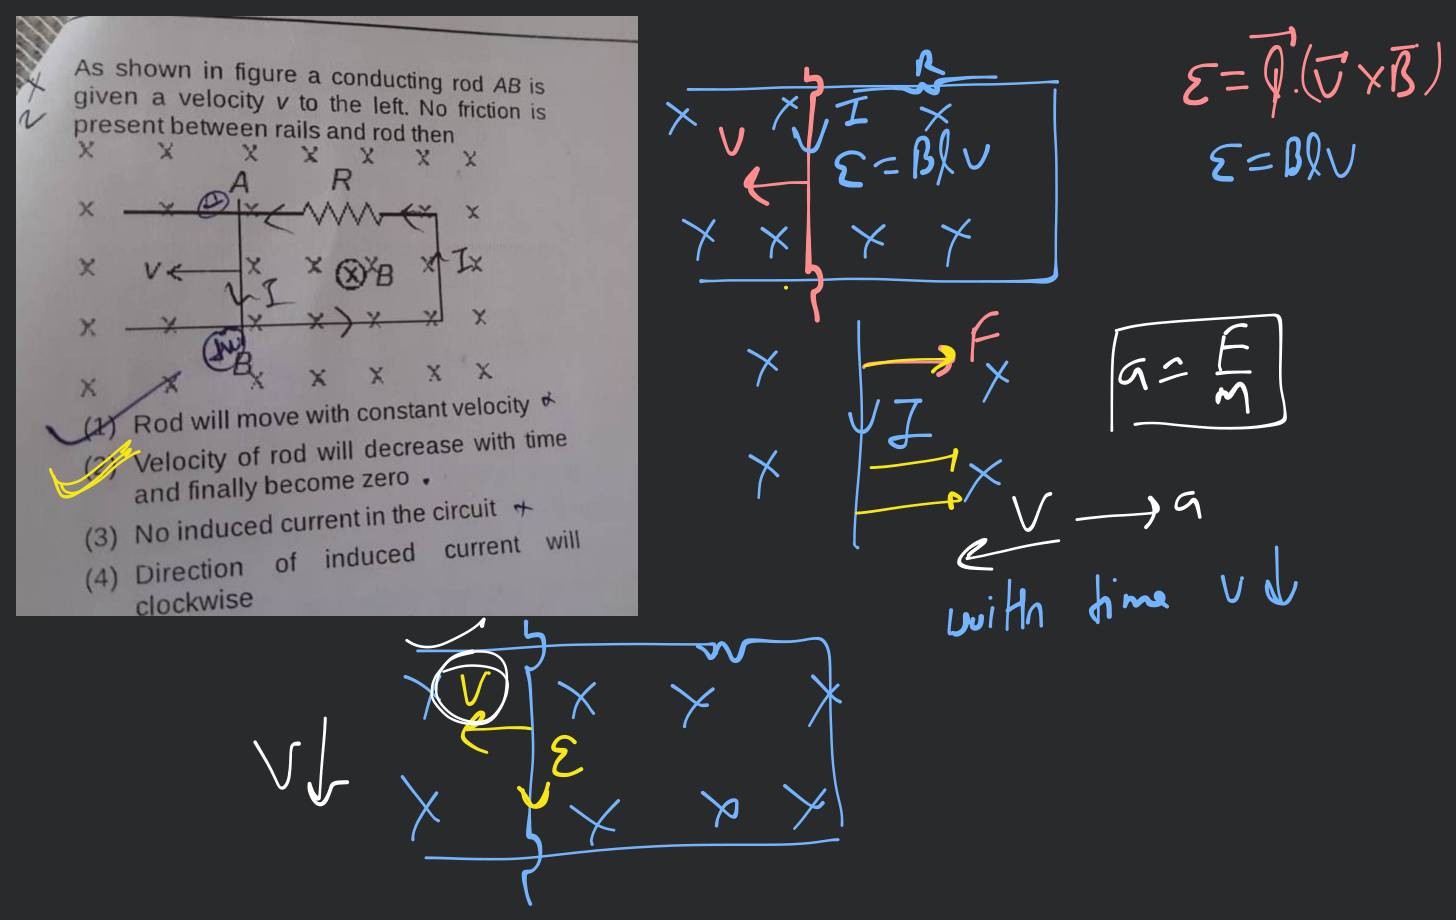 As shown in figure a conducting rod AB is
given a velocity v to the left. No friction is
present between rails and rod then
x x x x x x x
A R
x x x x
V x x x B x I x
I
x x x x x x x
B
x x x x x x x
(1) Rod will move with constant velocity
(2) Velocity of rod will decrease with time
and finally become zero .
(3) No induced current in the circuit
(4) Direction of induced current will
clockwise
R
x x I x
V
ε = Blv
x x x x
ε = l⃗.(v⃗ × B⃗)
ε = Blv
F
x x
I
x x
a = F/m
V → a
with time v ↓
V
x x x x
ε
x x x x
V↓